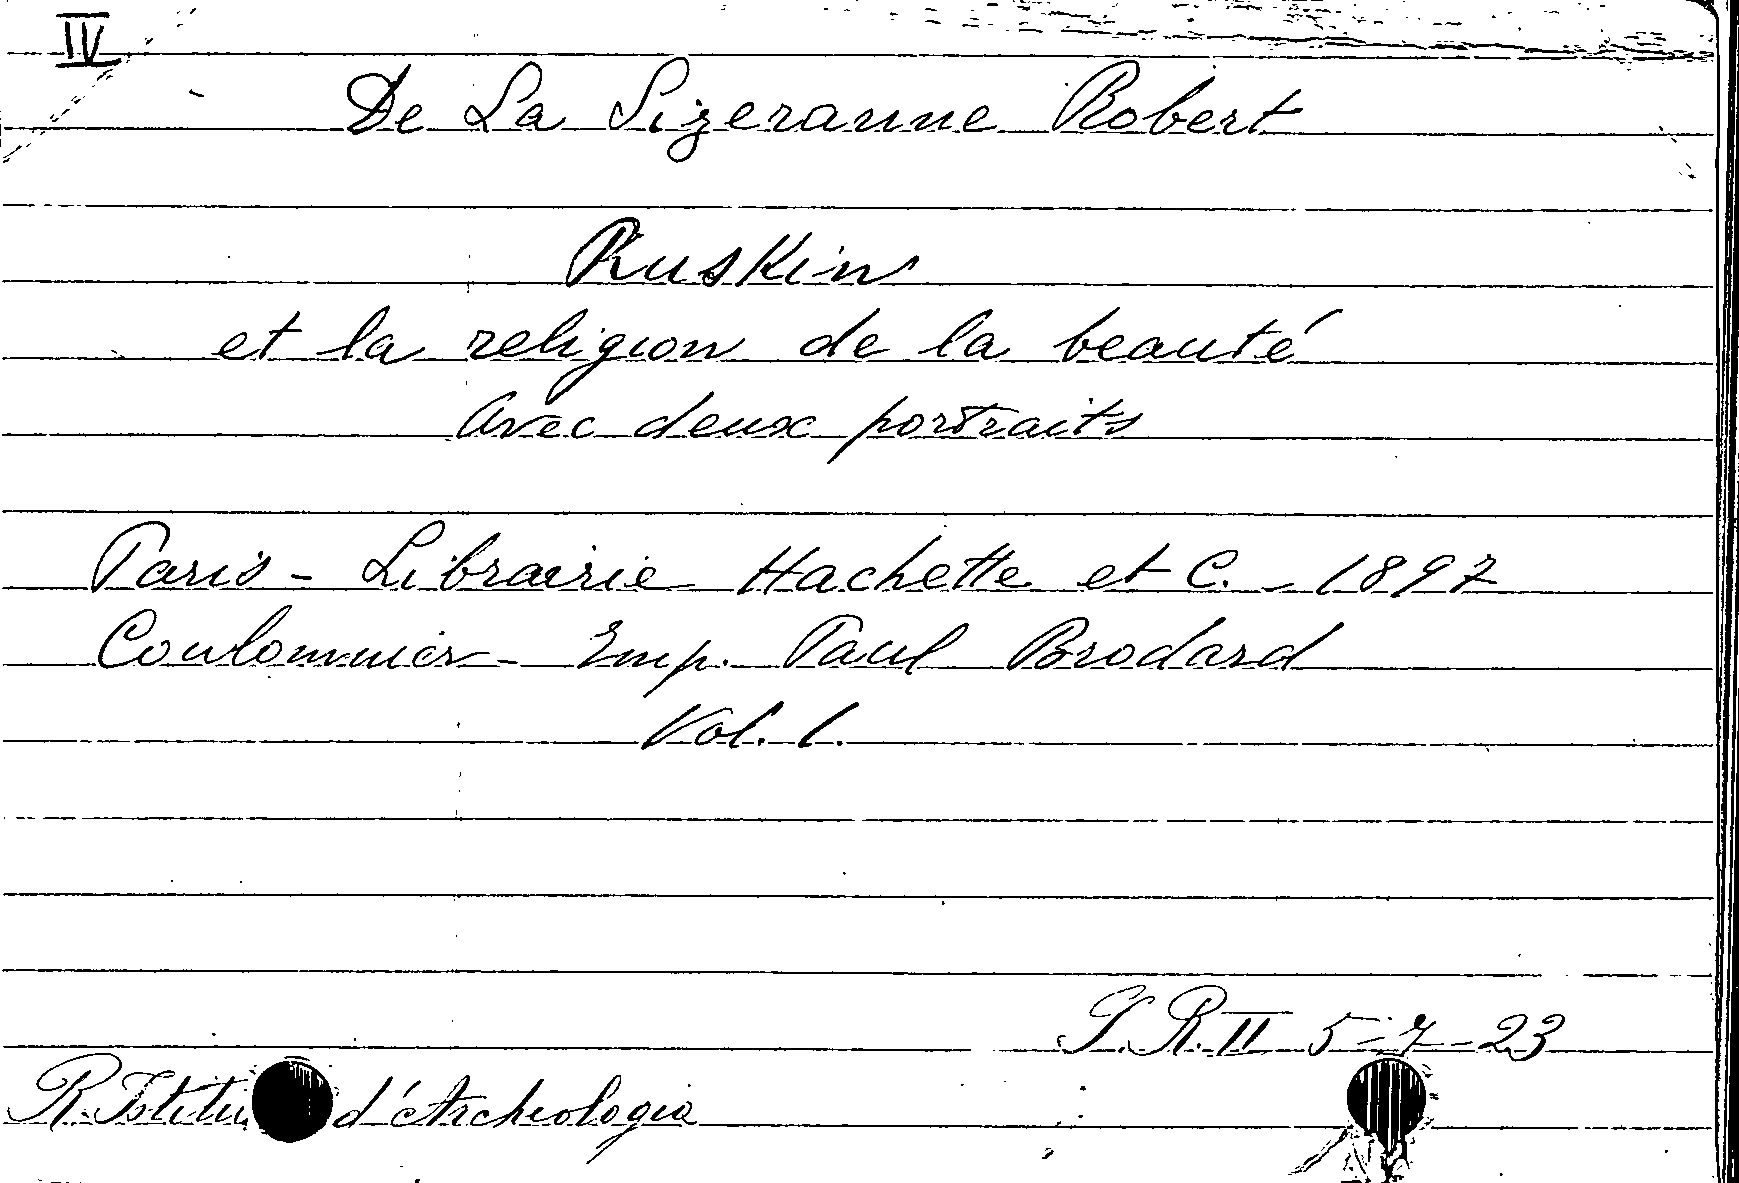 IV
De La Sizeranne Robert
Ruskin
et la religion de la beauté
Avec deux portraits
Paris - Librairie Hachette et C. - 1897
Coulommier - Imp. Paul Brodard
Vol. 1.
S. R. II 5-7-23
R. Istitu d'Archeologia